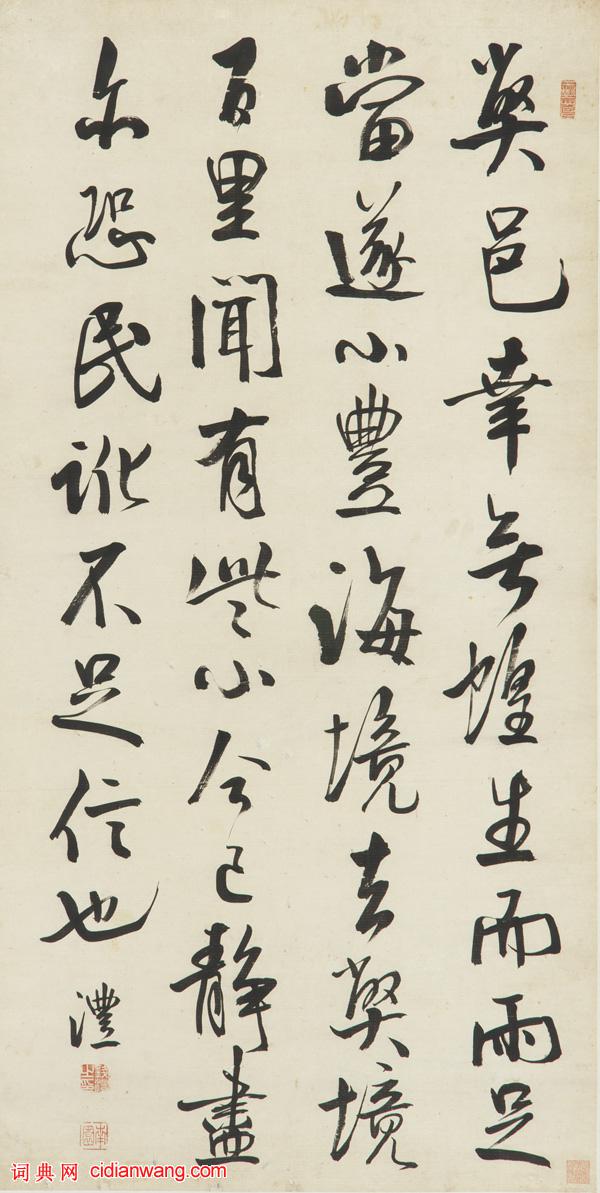 獘邑幸無蝗生而雨足
當遂小豐海境去獘境
百里聞有些小今已靜盡
尔恐民訛不足信也
澧
词典网 cidianwang.com